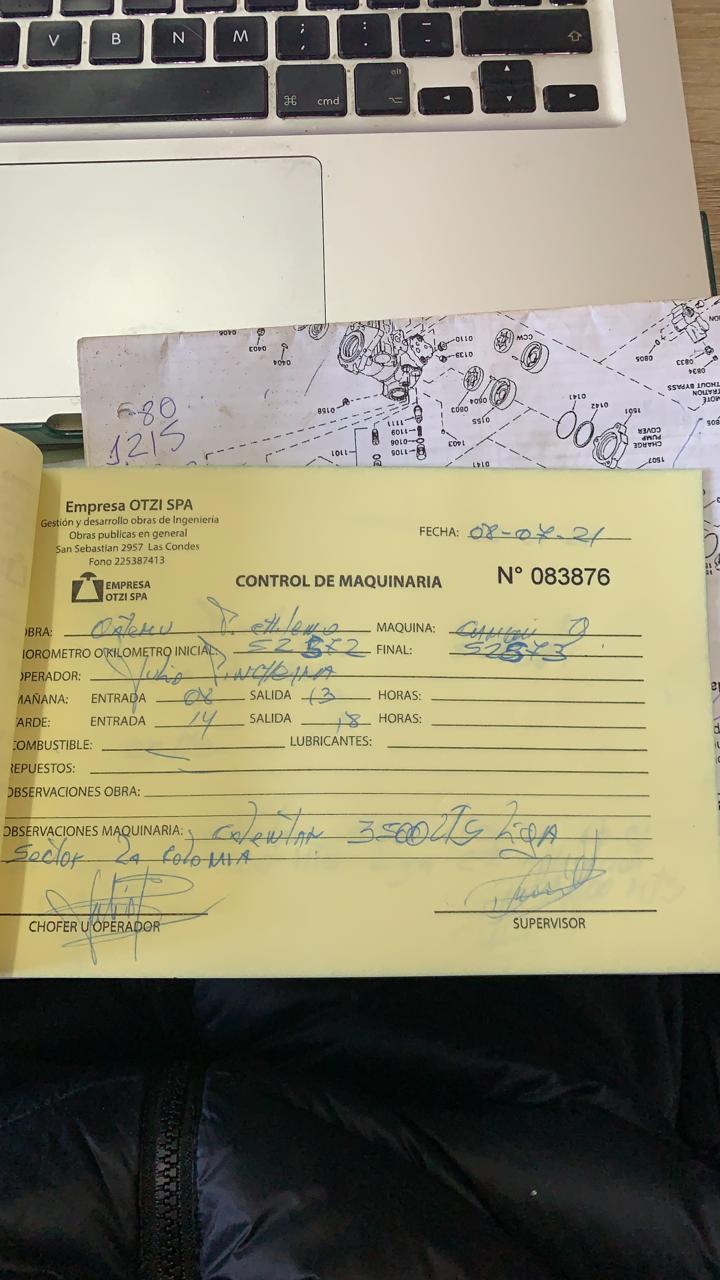 V B N M ; : -
cmd alt
0406 0403 0404 0110 0139 CCW 0805 0833 0834
0158 0803 0504 0155 0141 0142 1501
CHARGE PUMP COVER
1507
1111 1109 0106 1105 1101 1403 0141
WITHOUT BYPASS
80
1215
Empresa OTZI SPA
Gestión y desarrollo obras de Ingenieria
Obras publicas en general
San Sebastian 2957 Las Condes
Fono 225387413
EMPRESA
OTZI SPA
FECHA: 08-07-21
CONTROL DE MAQUINARIA
N° 083876
OBRA: MAQUINA:
HOROMETRO O KILOMETRO INICIAL 52572 FINAL: 52573
OPERADOR: Julio
MAÑANA: ENTRADA 08 SALIDA 13 HORAS:
TARDE: ENTRADA 14 SALIDA 18 HORAS:
COMBUSTIBLE: LUBRICANTES:
REPUESTOS:
OBSERVACIONES OBRA:
OBSERVACIONES MAQUINARIA: 3500 LTS
Sector La Colonia
CHOFER U OPERADOR
SUPERVISOR